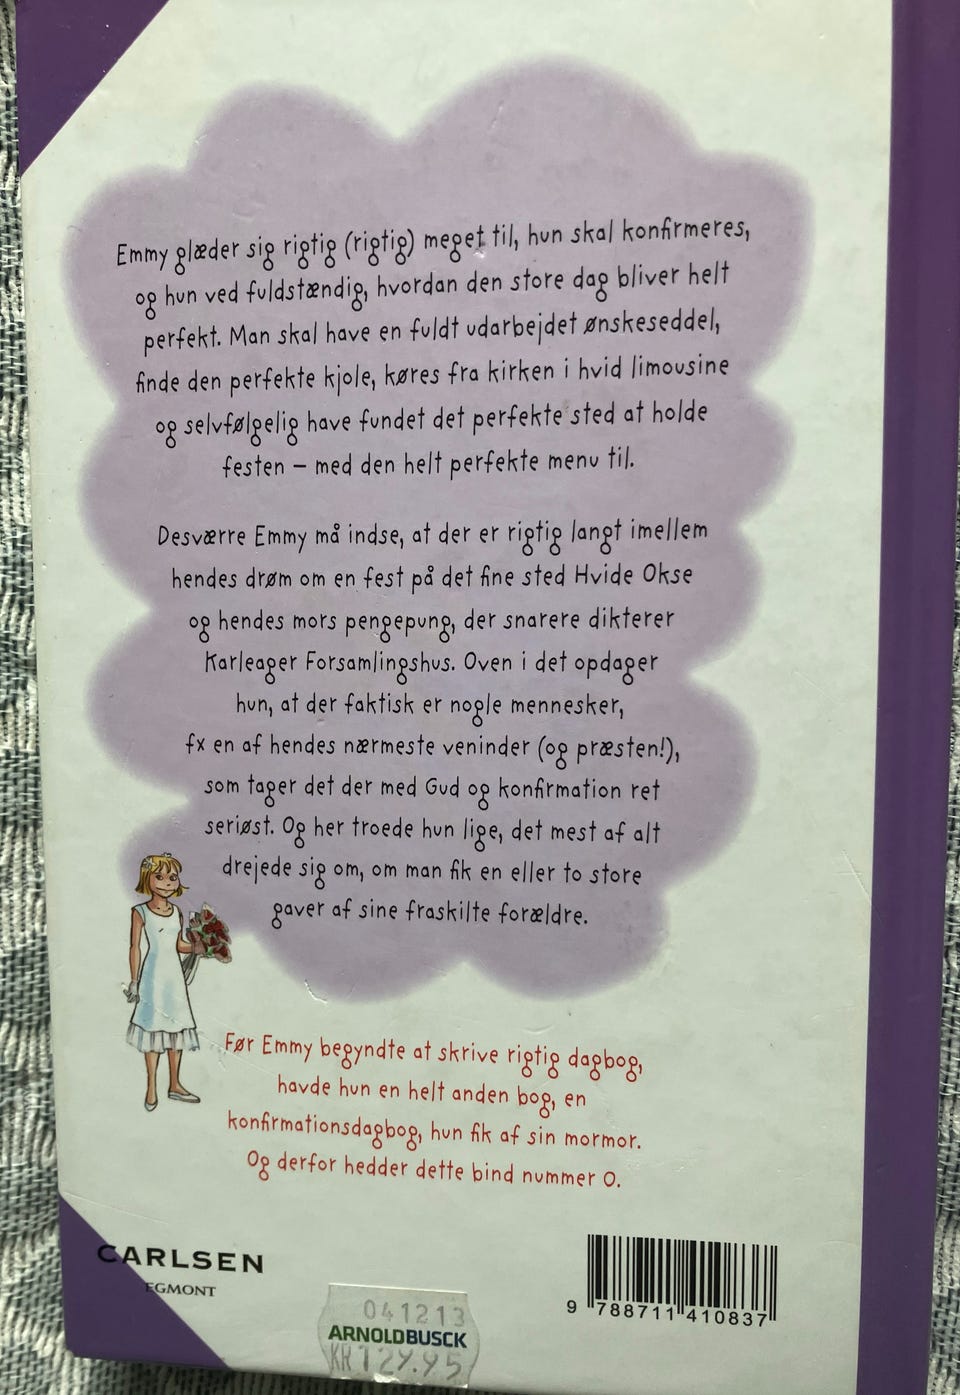 Emmy glæder sig rigtig (rigtig) meget til, hun skal konfirmeres,
og hun ved fuldstændig, hvordan den store dag bliver helt
perfekt. Man skal have en fuldt udarbejdet ønskeseddel,
finde den perfekte kjole, køres fra kirken i hvid limousine
og selvfølgelig have fundet det perfekte sted at holde
festen – med den helt perfekte menu til.
Desværre Emmy må indse, at der er rigtig langt imellem
hendes drøm om en fest på det fine sted Hvide Okse
og hendes mors pengepung, der snarere dikterer
Karleager Forsamlingshus. Oven i det opdager
hun, at der faktisk er nogle mennesker,
fx en af hendes nærmeste veninder (og præsten!),
som tager det der med Gud og konfirmation ret
seriøst. Og her troede hun lige, det mest af alt
drejede sig om, om man fik en eller to store
gaver af sine fraskilte forældre.
Før Emmy begyndte at skrive rigtig dagbog,
havde hun en helt anden bog, en
konfirmationsdagbog, hun fik af sin mormor.
Og derfor hedder dette bind nummer 0.
CARLSEN
EGMONT
041213
ARNOLD BUSCK
KR 129.95
9 788711 410837